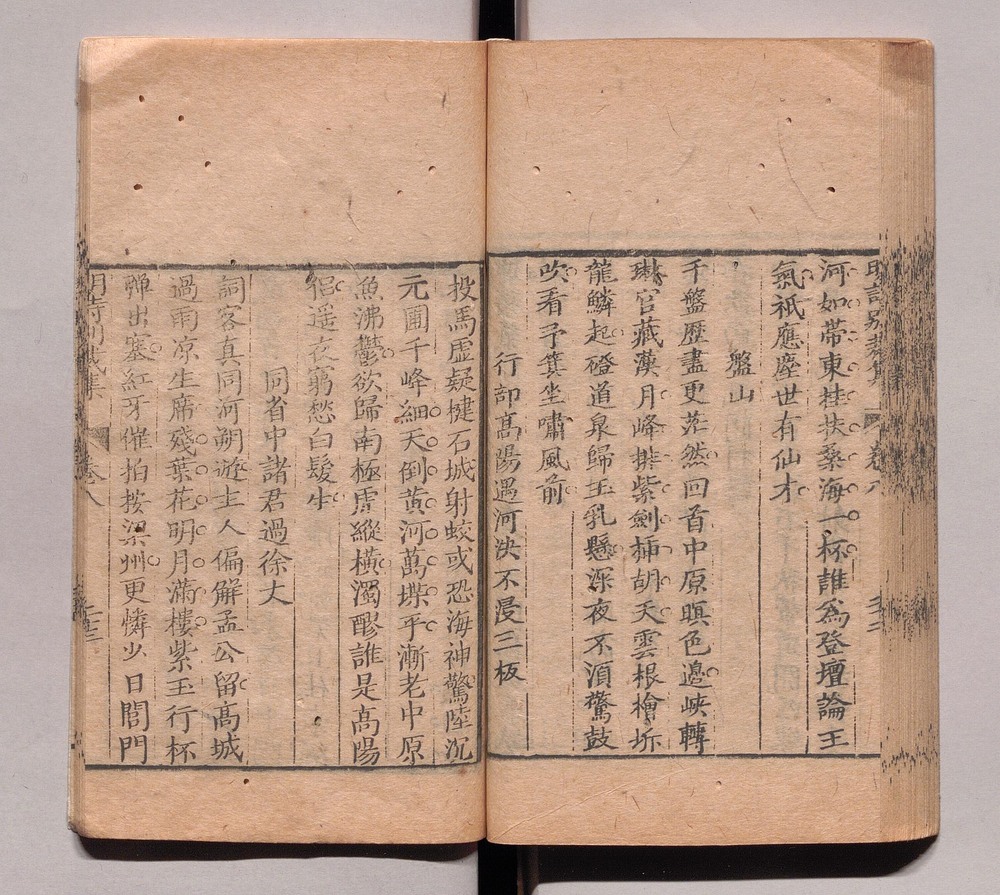 明詩別裁集 卷八 三二
河如帶東挂扶桑海一杯誰為登壇論王
氣祇應塵世有仙才
盤山
千盤歷盡更茫然回首中原暝色邊峽轉
官藏漢月峰排紫劍揷胡天雲根檜坼
龍鱗起磴道泉歸玉乳懸深夜不須驚鼓
吹看予箕坐嘯風前
行部高陽遇河決不浸三板
投馬虛疑楗石城射蛟或恐海神驚陸沉
元圃千峰細天倒黃河萬堞平漸老中原
魚沸鬱欲歸南極虜縱橫濁醪誰是高陽
侶遥夜窮愁白髮生
同省中諸君過徐丈
詞客真同河朔遊主人偏解孟公留高城
過雨凉生席殘葉花明月滿樓紫玉行杯
彈出塞紅牙催拍按梁州更憐少日閻門
明詩別裁集 卷八